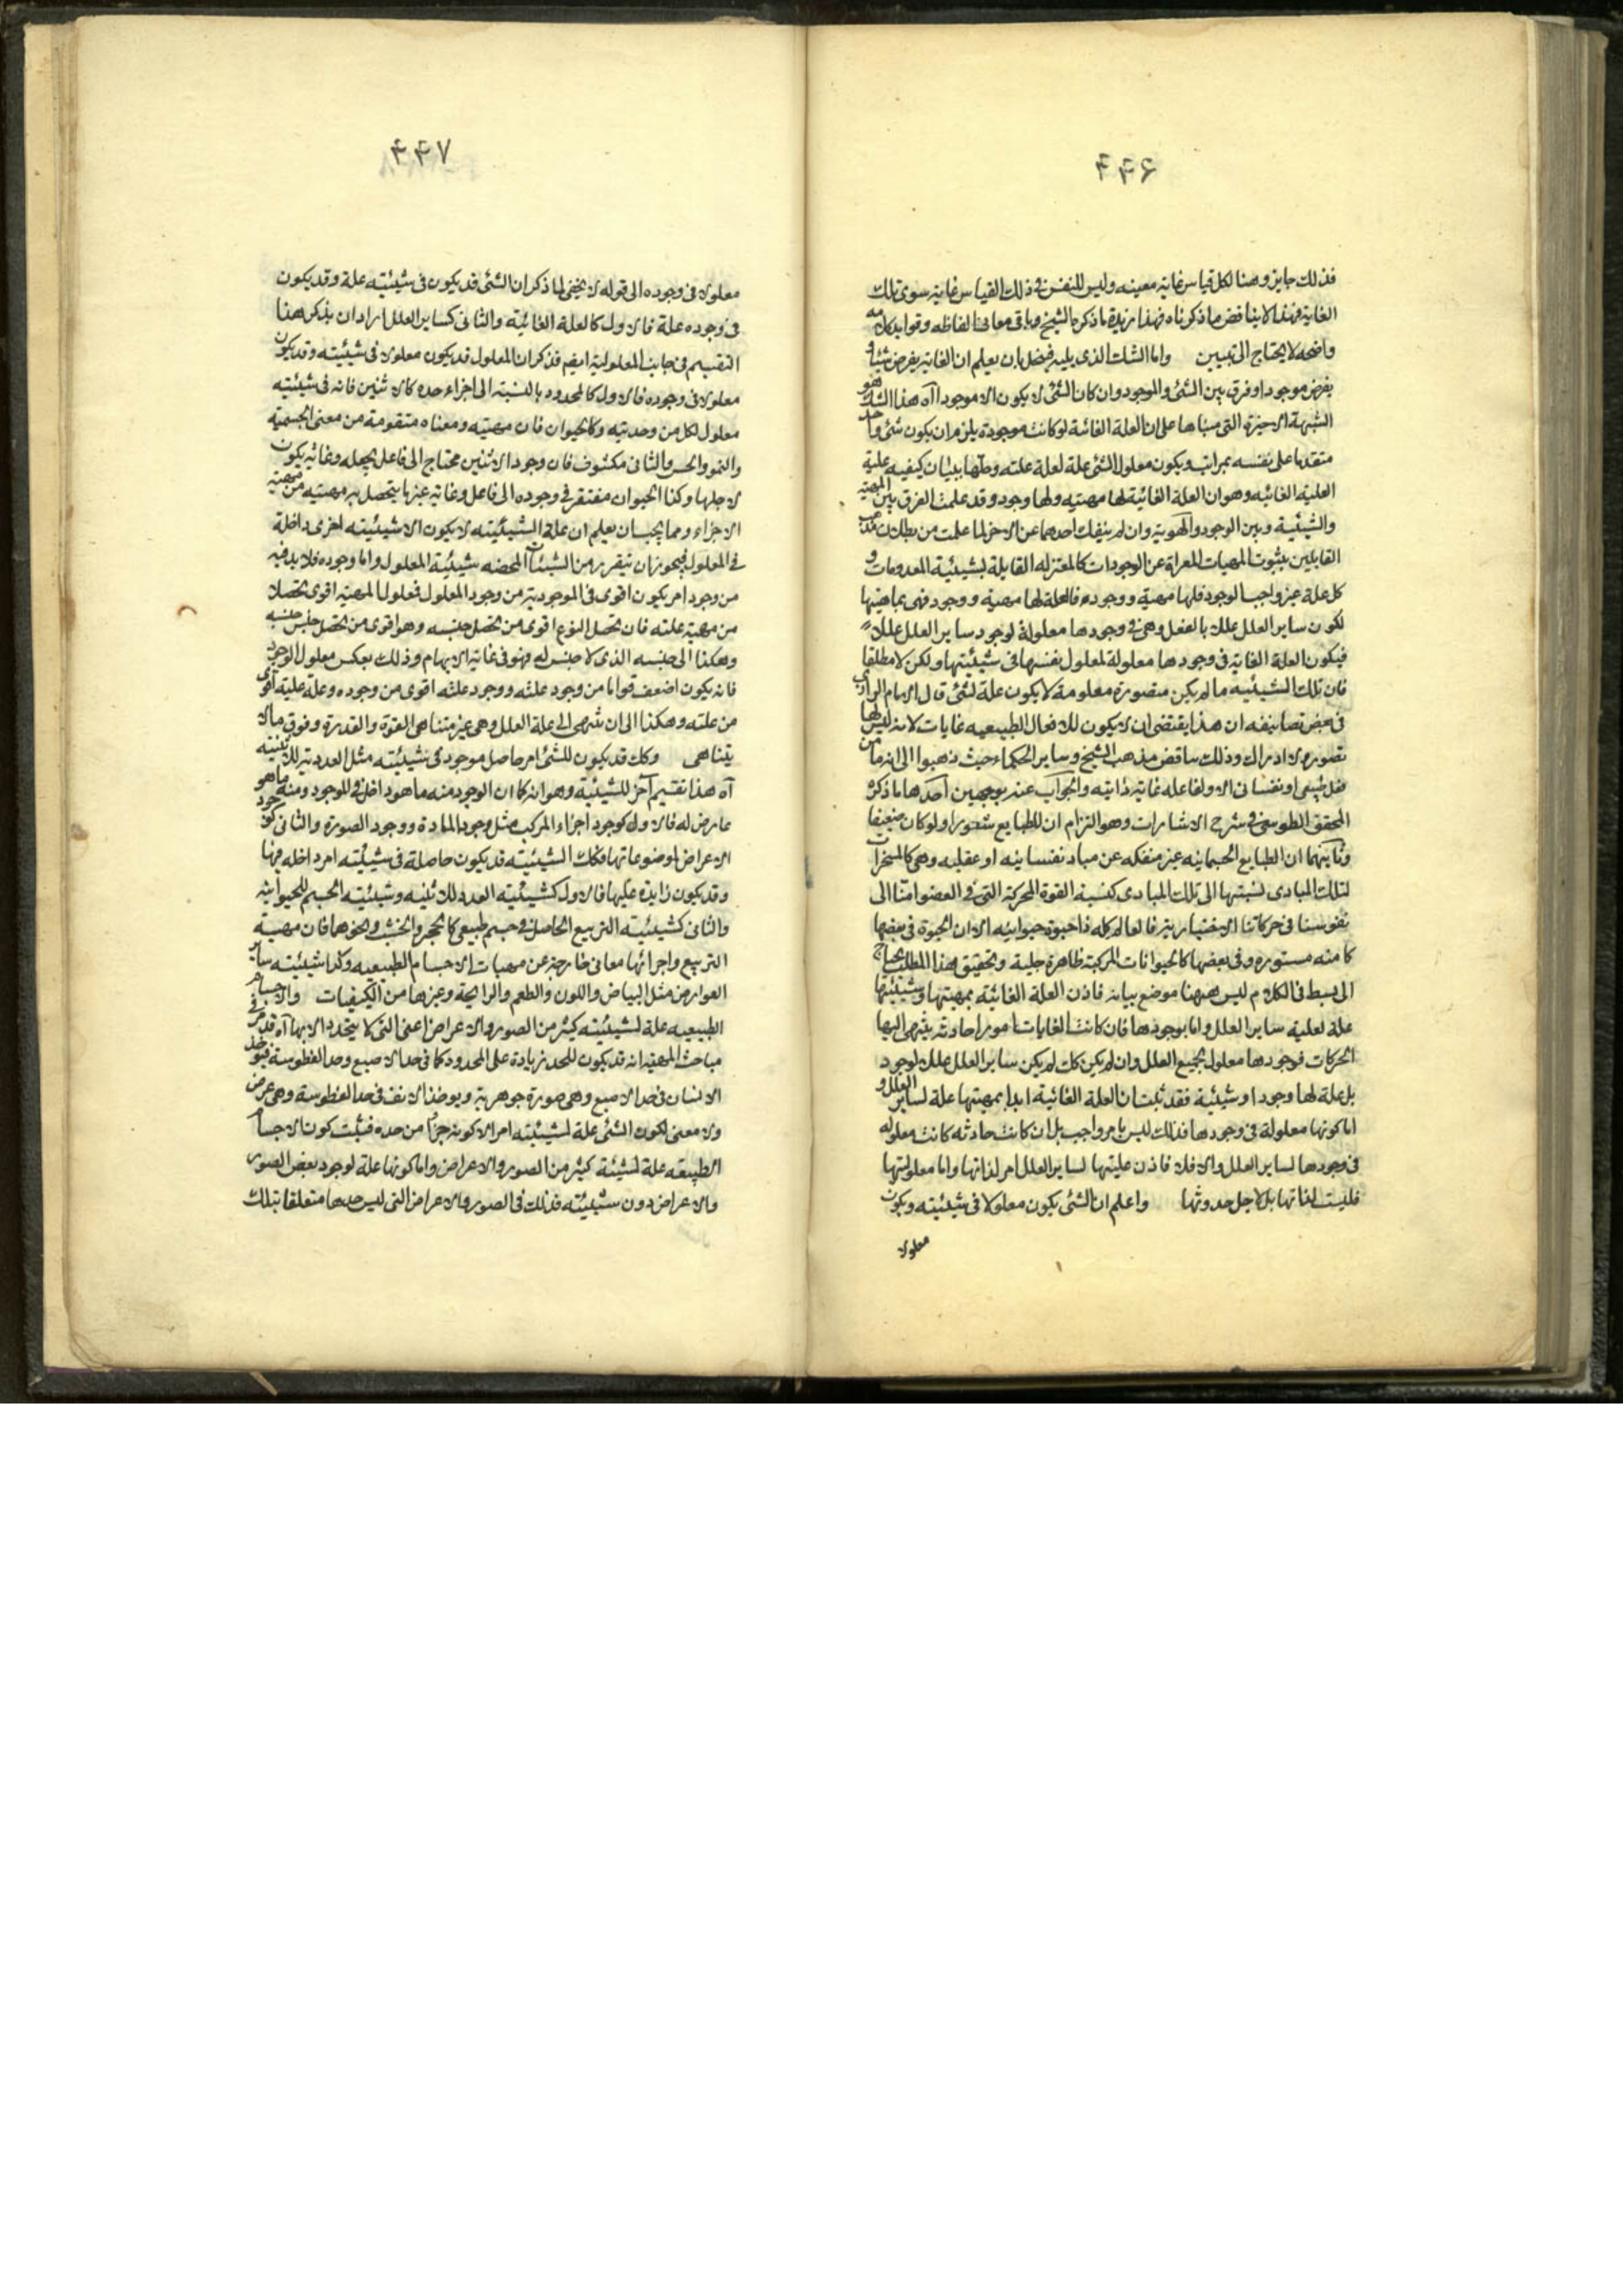 ۴۴۶
فذلك جايز وهنا لكل قياس غاية معينه وليس للنفس فى ذلك القياس غاية سوى تلك
الغاية فهذا لا يناقض ما ذكرناه فهذا زبدة ما ذكره الشيخ وباقى معانى الفاظه وفوايد كلامه
واضحه لا يحتاج الى تبيين واما الشك الذى يليه فينحل بان يعلم ان الغاية يفرض شيئا و
يفرض موجودا وفرق بين الشئ والموجود وان كان الشئ لا يكون الا موجودا آه هذا الشك هو
الشبهة الاخيرة التى مبناها على ان العلة الغائية لو كانت موجودة يلزم ان يكون شئ واحد
متقدما على نفسه بمراتب ويكون معلول الشئ علة لعلة علته وحلها ببيان كيفيه علية
العلية الغائيه وهو ان العلة الغائية لها مهيته ولها وجود وقد علمت الفرق بين المهية
والشيئية وبين الوجود والهوية وان لم ينفك احدهما عن الاخر لما علمت من بطلان مذهب
القايلين بثبوت المهيات المعراة عن الوجودات كالمعتزله القايلة بشيئية المعدومات و
كل علة غير واجب الوجود فلها مهية ووجود فالعلة لها مهية ووجود فهى بماهيتها
لكون ساير العلل عللا بالفعل وهى فى وجودها معلولة لوجود ساير العلل عللا
فيكون العلة الغاية فى وجودها معلولة لمعلول نفسها فى شيئيتها ولكن لا مطلقا
فان تلك الشيئيه ما لم يكن متصورة معلومة لا يكون علة لشئ قال الامام الرازى
فى بعض تصانيفه ان هذا يقتضى ان لا يكون للافعال الطبيعيه غايات لانه ليس لها
تصور ولا ادراك وذلك يناقض مذهب الشيخ وساير الحكماء حيث ذهبوا الى انه ما من
فعل طبيعى او نفسانى الا ولفاعله غاية ذاتيه والجواب عنه بوجهين احدهما ما ذكره
المحقق الطوسى فى شرح الاشارات وهو التزام ان للطبايع شعورا ولو كان ضعيفا
وثانيهما ان الطبايع الجسمانيه غير منفكه عن مباد نفسانيه او عقليه وهى كالمسخرات
لتلك المبادى نسبتها الى تلك المبادى كنسبة القوة المحركة التى فى العضو امثالى
نفوسنا فى حركاتنا الاختيارية فالعالم كله ذا حيوة حيوانيه الا ان الحيوة فى بعضها
كامنه مستوره وفى بعضها كالحيوانات المركبة ظاهرة جلية وتحقيق هذا المطلب يحتاج
الى بسط فى الكلام ليس ههنا موضع بيانه فاذن العلة الغائية بمهيتها وشيئيتها
علة لعلية ساير العلل واما بوجودها فان كانت الغايات امورا حادثه ينتهى اليها
الحركات فوجودها معلول لجميع العلل وان لم يكن كك لم يكن ساير العلل عللا لوجود
بل علة لها وجودا وشيئية فقد ثبت ان العلة الغائية ابدا بمهيتها علة لساير العلل و
اما كونها معلولة فى وجودها فذلك ليس بامر واجب بل ان كانت حادثه كانت معلوله
فى وجودها لساير العلل والا فلا فاذن عليتها لساير العلل امر لذاتها واما معلوليتها
فليست لذاتها بل لاجل حدوثها واعلم ان الشئ يكون معلولا فى شيئيته ويكون
معلولا
۴۴۷
معلولا فى وجوده الى قوله لا يخفى لما ذكر ان الشئ قد يكون فى شيئيته علة وقد يكون
فى وجوده علة فالاول كالعلة الغائية والثانى كساير العلل اراد ان يذكر هنا
التقسيم فى جانب المعلولية ايضم فذكر ان المعلول قد يكون معلولا فى شيئيته وقد يكون
معلولا فى وجوده فالاول كالمحدود بالنسبة الى اجزاء حده كالاثنين فانه فى شيئيته
معلول لكل من وحدتيه وكالحيوان فان مهيته ومعناه متقومة من معنى الجسمية
والنمو والحس والثانى مكشوف فان وجود الاثنين محتاج الى فاعل يجعله وغاية يكون
لاجلها وكذا الحيوان مفتقر فى وجوده الى فاعل وغاية غير ما يتحصل به مهيته من مهية
الاجزاء ومما يجب ان يعلم ان علة الشيئيته لا يكون الا شيئيته اخرى داخلة
فى المعلول فيجوز ان يتقرر من الشيئات المحضه شيئية المعلول واما وجوده فلا بد فيه
من وجود امر يكون اقوى فى الموجودية من وجود المعلول فمعلول المهية اقوى تحصلا
من مهية علته فان تحصل النوع اقوى من تحصل جنسه وهو اقوى من تحصل جنس جنسه
وهكذا الى جنسه الذى لا جنس له فهو فى غاية الابهام وذلك بعكس معلول الوجود
فانه يكون اضعف قواما من وجود علته ووجود علته اقوى من وجوده وعلة علية اقوى
من علته وهكذا الى ان ينتهى الى علة العلل وهى غير متناهى القوة والقدرة وفوق ما لا
يتناهى وكك قد يكون للشئ امر حاصل موجود فى شيئيته مثل العددية للاثنينيه
آه هذا تقسيم آخر للشيئية وهو انه كما ان الوجود منه ما هو داخل فى الوجود ومنه ما هو
عارض له فالاول كوجود اجزاء المركب مثل وجود المادة ووجود الصورة والثانى كوجود
الاعراض لموضوعاتها فكك الشيئيته قد يكون حاصلة فى شيئيته امر داخله فيها
وقد يكون زايدة عليها فالاول كشيئيته العدد للاثنينيه وشيئيته الجسم للحيوانيه
والثانى كشيئيته التربيع الحاصل فى جسم طبيعى كالحجر والخشب ونحوهما فان مهية
التربيع واجزائها معانى خارجة عن مهيات الاجسام الطبيعيه وكذا شيئيته ساير
العوارض مثل البياض واللون والطعم والرايحة وغيرها من الكيفيات والاجسام
الطبيعيه علة لشيئيته كثير من الصور والاعراض اعنى التى لا يتحدد الا بها آه قد مر فى
مباحث المهية انه قد يكون للحد زيادة على المحدود كما فى حد الاصبع وحد الفطوسة فيؤخذ
الانسان فى حد الاصبع وهى صورة جوهرية ويوخذ الانف فى حد الفطوسة وهى عرض
ولا معنى لكون الشئ علة لشيئيته امر الا كونه جزأ من حده فثبت كون الاجسام
الطبيعه علة لشيئة كثير من الصور والاعراض واما كونها علة لوجود بعض الصور
والاعراض دون شيئيته فذلك فى الصور والاعراض التى ليس حدها متعلقا بتلك